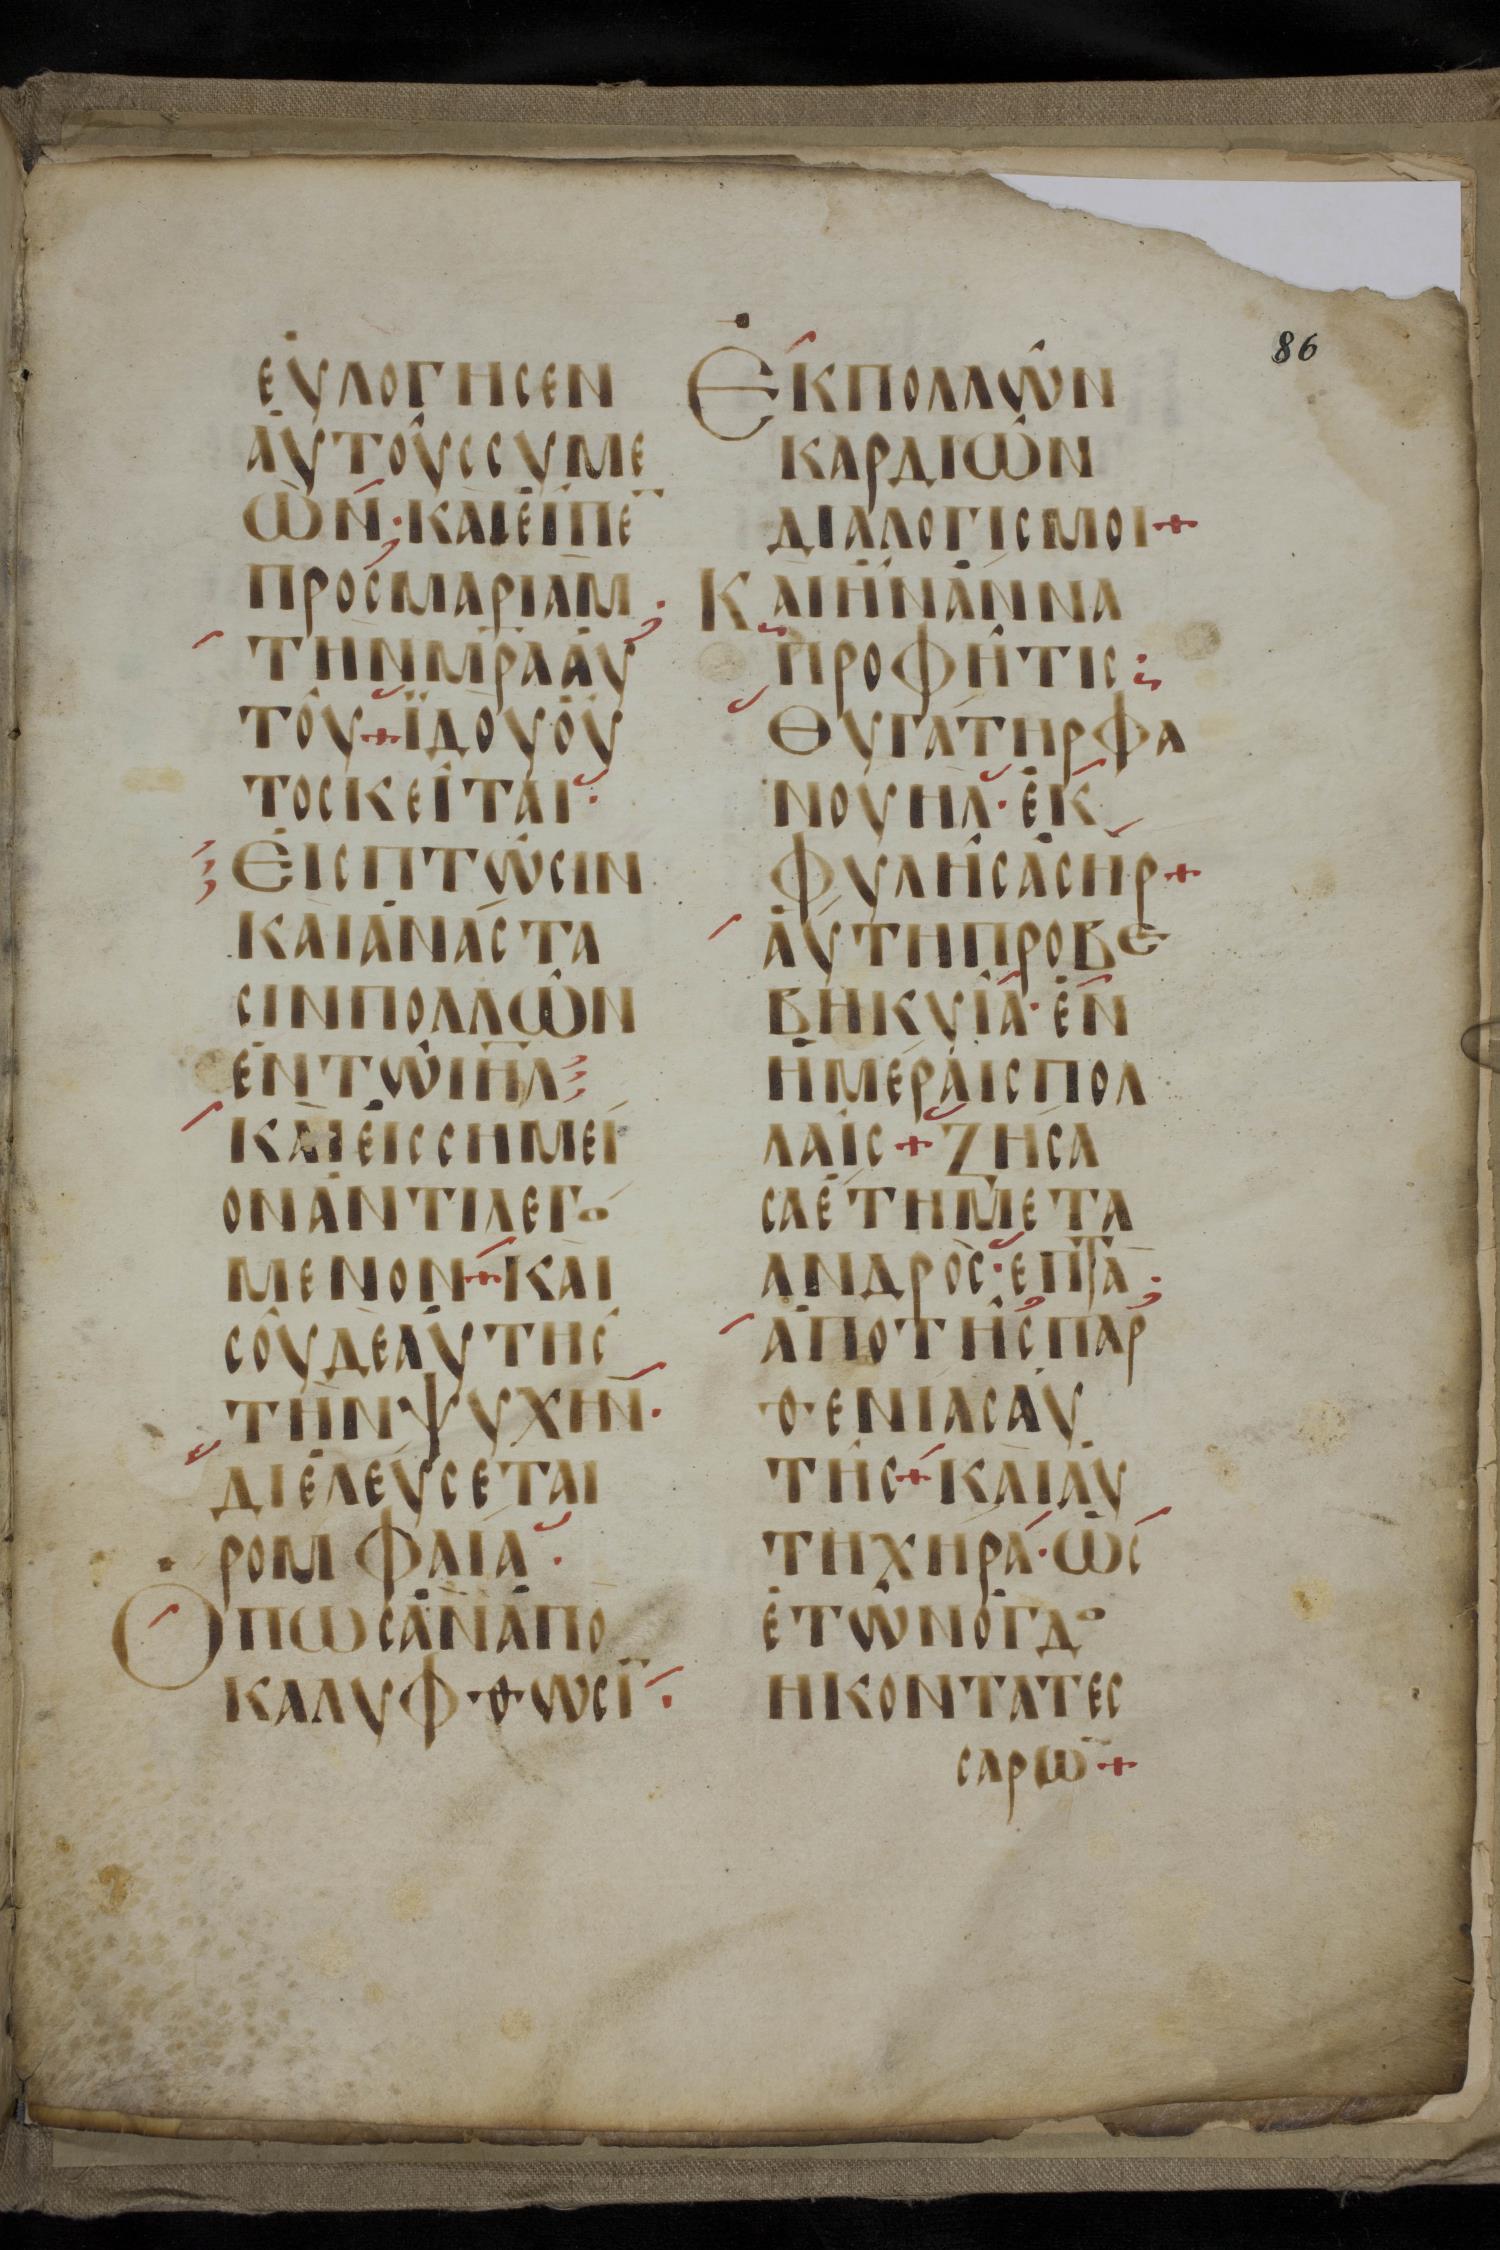 86
ΕΥΛΟΓΗСΕΝ
ΑΥΤΟΥССΥΜΕ
ΩΝ·ΚΑΙΕΙΠΕ̅
ΠΡΟСΜΑΡΙΑΜ·
ΤΗΝΜ̅Ρ̅Α̅ΑΥ
ΤΟΥ+ΪΔΟΥΟΥ
ΤΟСΚΕΙΤΑΙ·
ΕΙСΠΤΩСΙΝ
ΚΑΙΑΝΑСΤΑ
СΙΝΠΟΛΛΩΝ
ΕΝΤΩΙ̅Η̅Λ̅
ΚΑΙΕΙССΗΜΕΙ
ΟΝΑΝΤΙΛΕΓΟ
ΜΕΝΟΝ+ΚΑΙ
СΟΥΔΕΑΥΤΗС
ΤΗΝΨΥΧΗΝ·
ΔΙΕΛΕΥСΕΤΑΙ
ΡΟΜΦΑΙΑ·
ΟΠΩСΑΝΑΠΟ
ΚΑΛΥΦΘΩСΙ̅·
ΕΚΠΟΛΛΩΝ
ΚΑΡΔΙΩΝ
ΔΙΑΛΟΓΙСΜΟΙ+
ΚΑΙΗΝΑΝΝΑ
ΠΡΟΦΗΤΙС:
ΘΥΓΑΤΗΡΦΑ
ΝΟΥΗΛ·ΕΚ
ΦΥΛΗСΑСΗΡ+
ΑΥΤΗΠΡΟΒΕ
ΒΗΚΥΙΑ·ΕΝ
ΗΜΕΡΑΙСΠΟΛ
ΛΑΙС+ΖΗСΑ
СΑΕΤΗΜΕΤΑ
ΑΝΔΡΟС·ΕΠΤΑ·
ΑΠΟΤΗСΠΑΡ
ΘΕΝΙΑСΑΥ
ΤΗС+ΚΑΙΑΥ
ΤΗΧΗΡΑ·ΩС
ΕΤΩΝΟΓΔΟ
ΗΚΟΝΤΑΤΕС
СΑΡΩ̅+